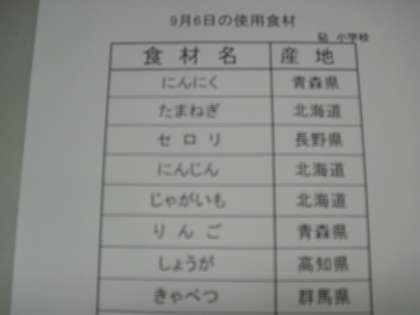 9月6日の使用食材
砧 小学校
食 材 名 産 地
にんにく 青森県
たまねぎ 北海道
セ ロ リ 長野県
にんじん 北海道
じゃがいも 北海道
り ん ご 青森県
しょうが 高知県
きゃべつ 群馬県